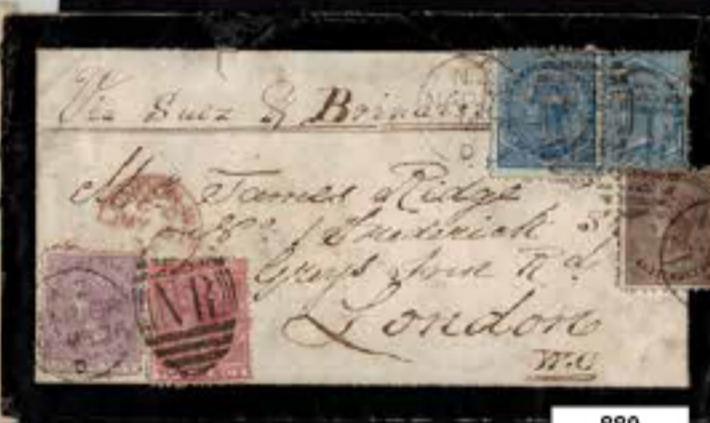 Via Suez & Brindisi
Mrs James Ridge
No 1 Frederick St
Grays Inn Rd
London
W.C
NR
889